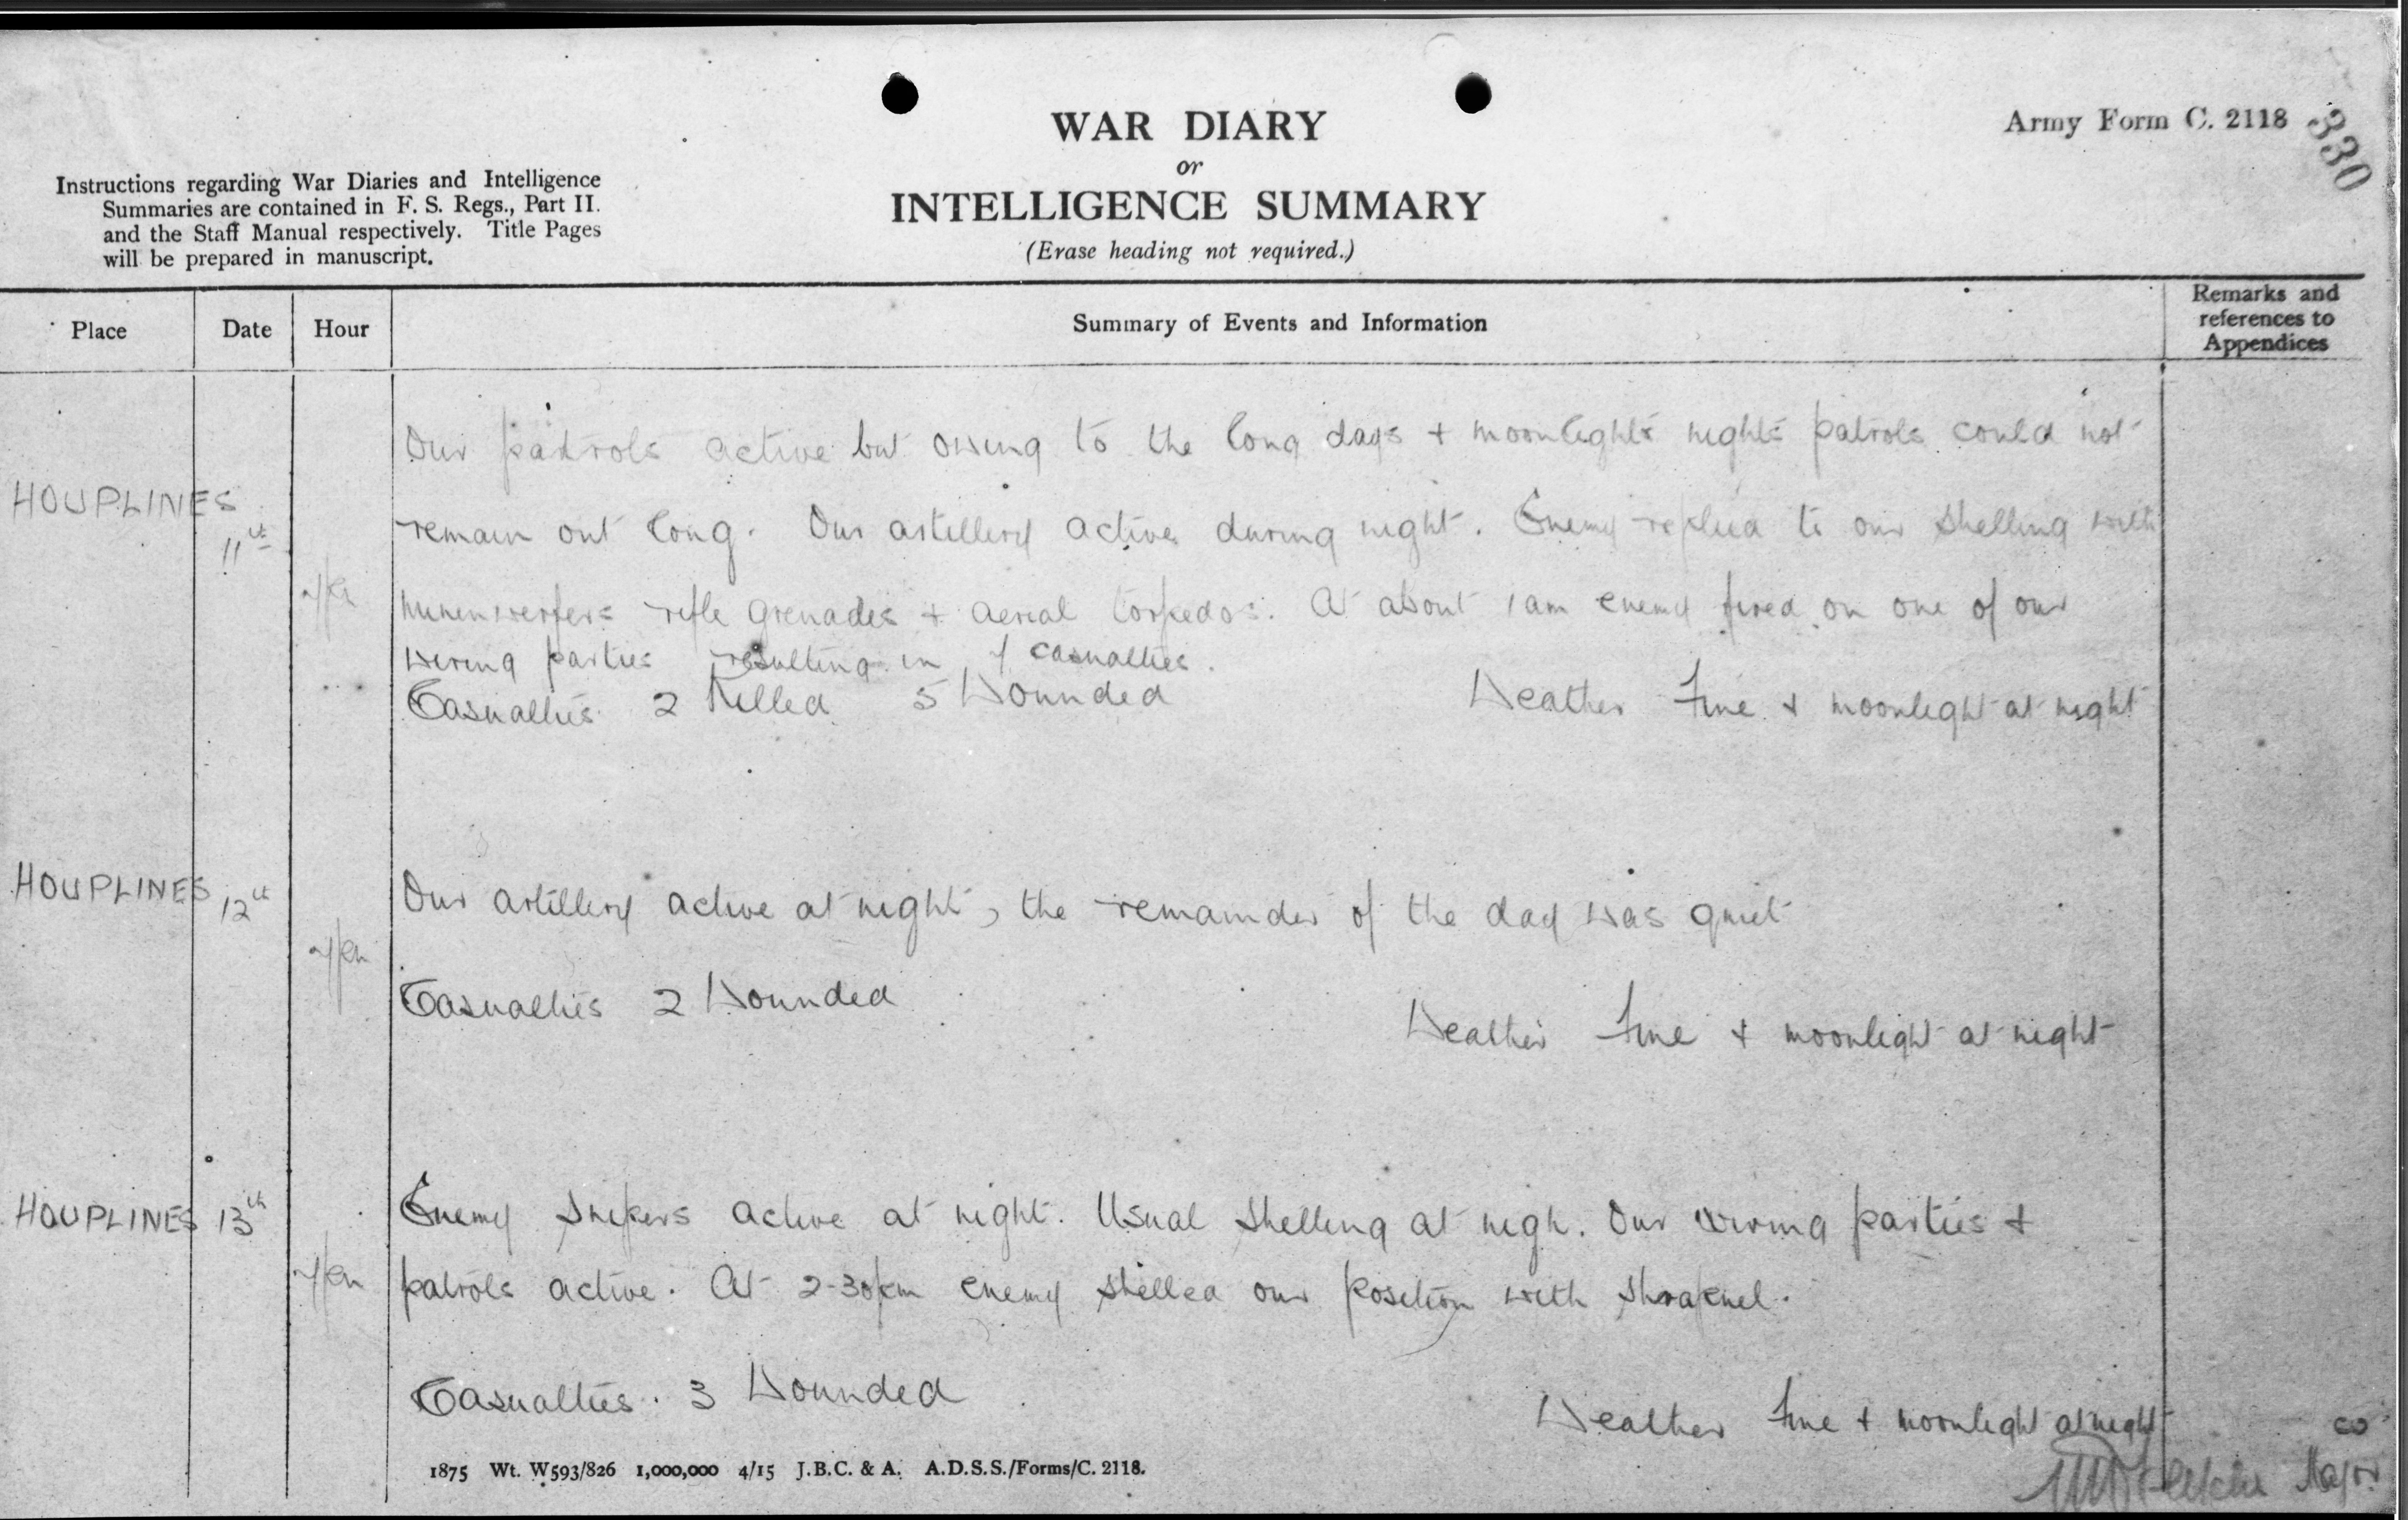 WAR DIARY
or
INTELLIGENCE SUMMARY
(Erase heading not required.)
Army Form C. 2118
330
Instructions regarding War Diaries and Intelligence
Summaries are contained in F. S. Regs., Part II.
and the Staff Manual respectively. Title Pages
will be prepared in manuscript.
Place Date Hour Summary of Events and Information
Remarks and
references to
Appendices
Our patrols active but owing to the long days + moonlight nights patrols could not
HOUPLINES
11th
remain out long. Our artillery active during night. Enemy replied to our shelling with
minenwerfers rifle grenades + aerial torpedos. At about 1 am enemy fired on one of our
wiring parties resulting in 7 casualties.
Casualties 2 Killed 5 Wounded Weather Fine + moonlight at night
HOUPLINES 12th Our artillery active at night, the remainder of the day was quiet
Casualties 2 Wounded
Weather Fine + moonlight at night
HOUPLINES 13th Enemy snipers active at night. Usual shelling at nigh. Our wiring parties +
patrols active. At 2-30pm enemy shelled our position with shrapnel.
Casualties. 3 Wounded
Weather Fine + moonlight at night
Major
1875 Wt. W593/826 1,000,000 4/15 J.B.C. & A. A.D.S.S./Forms/C. 2118.